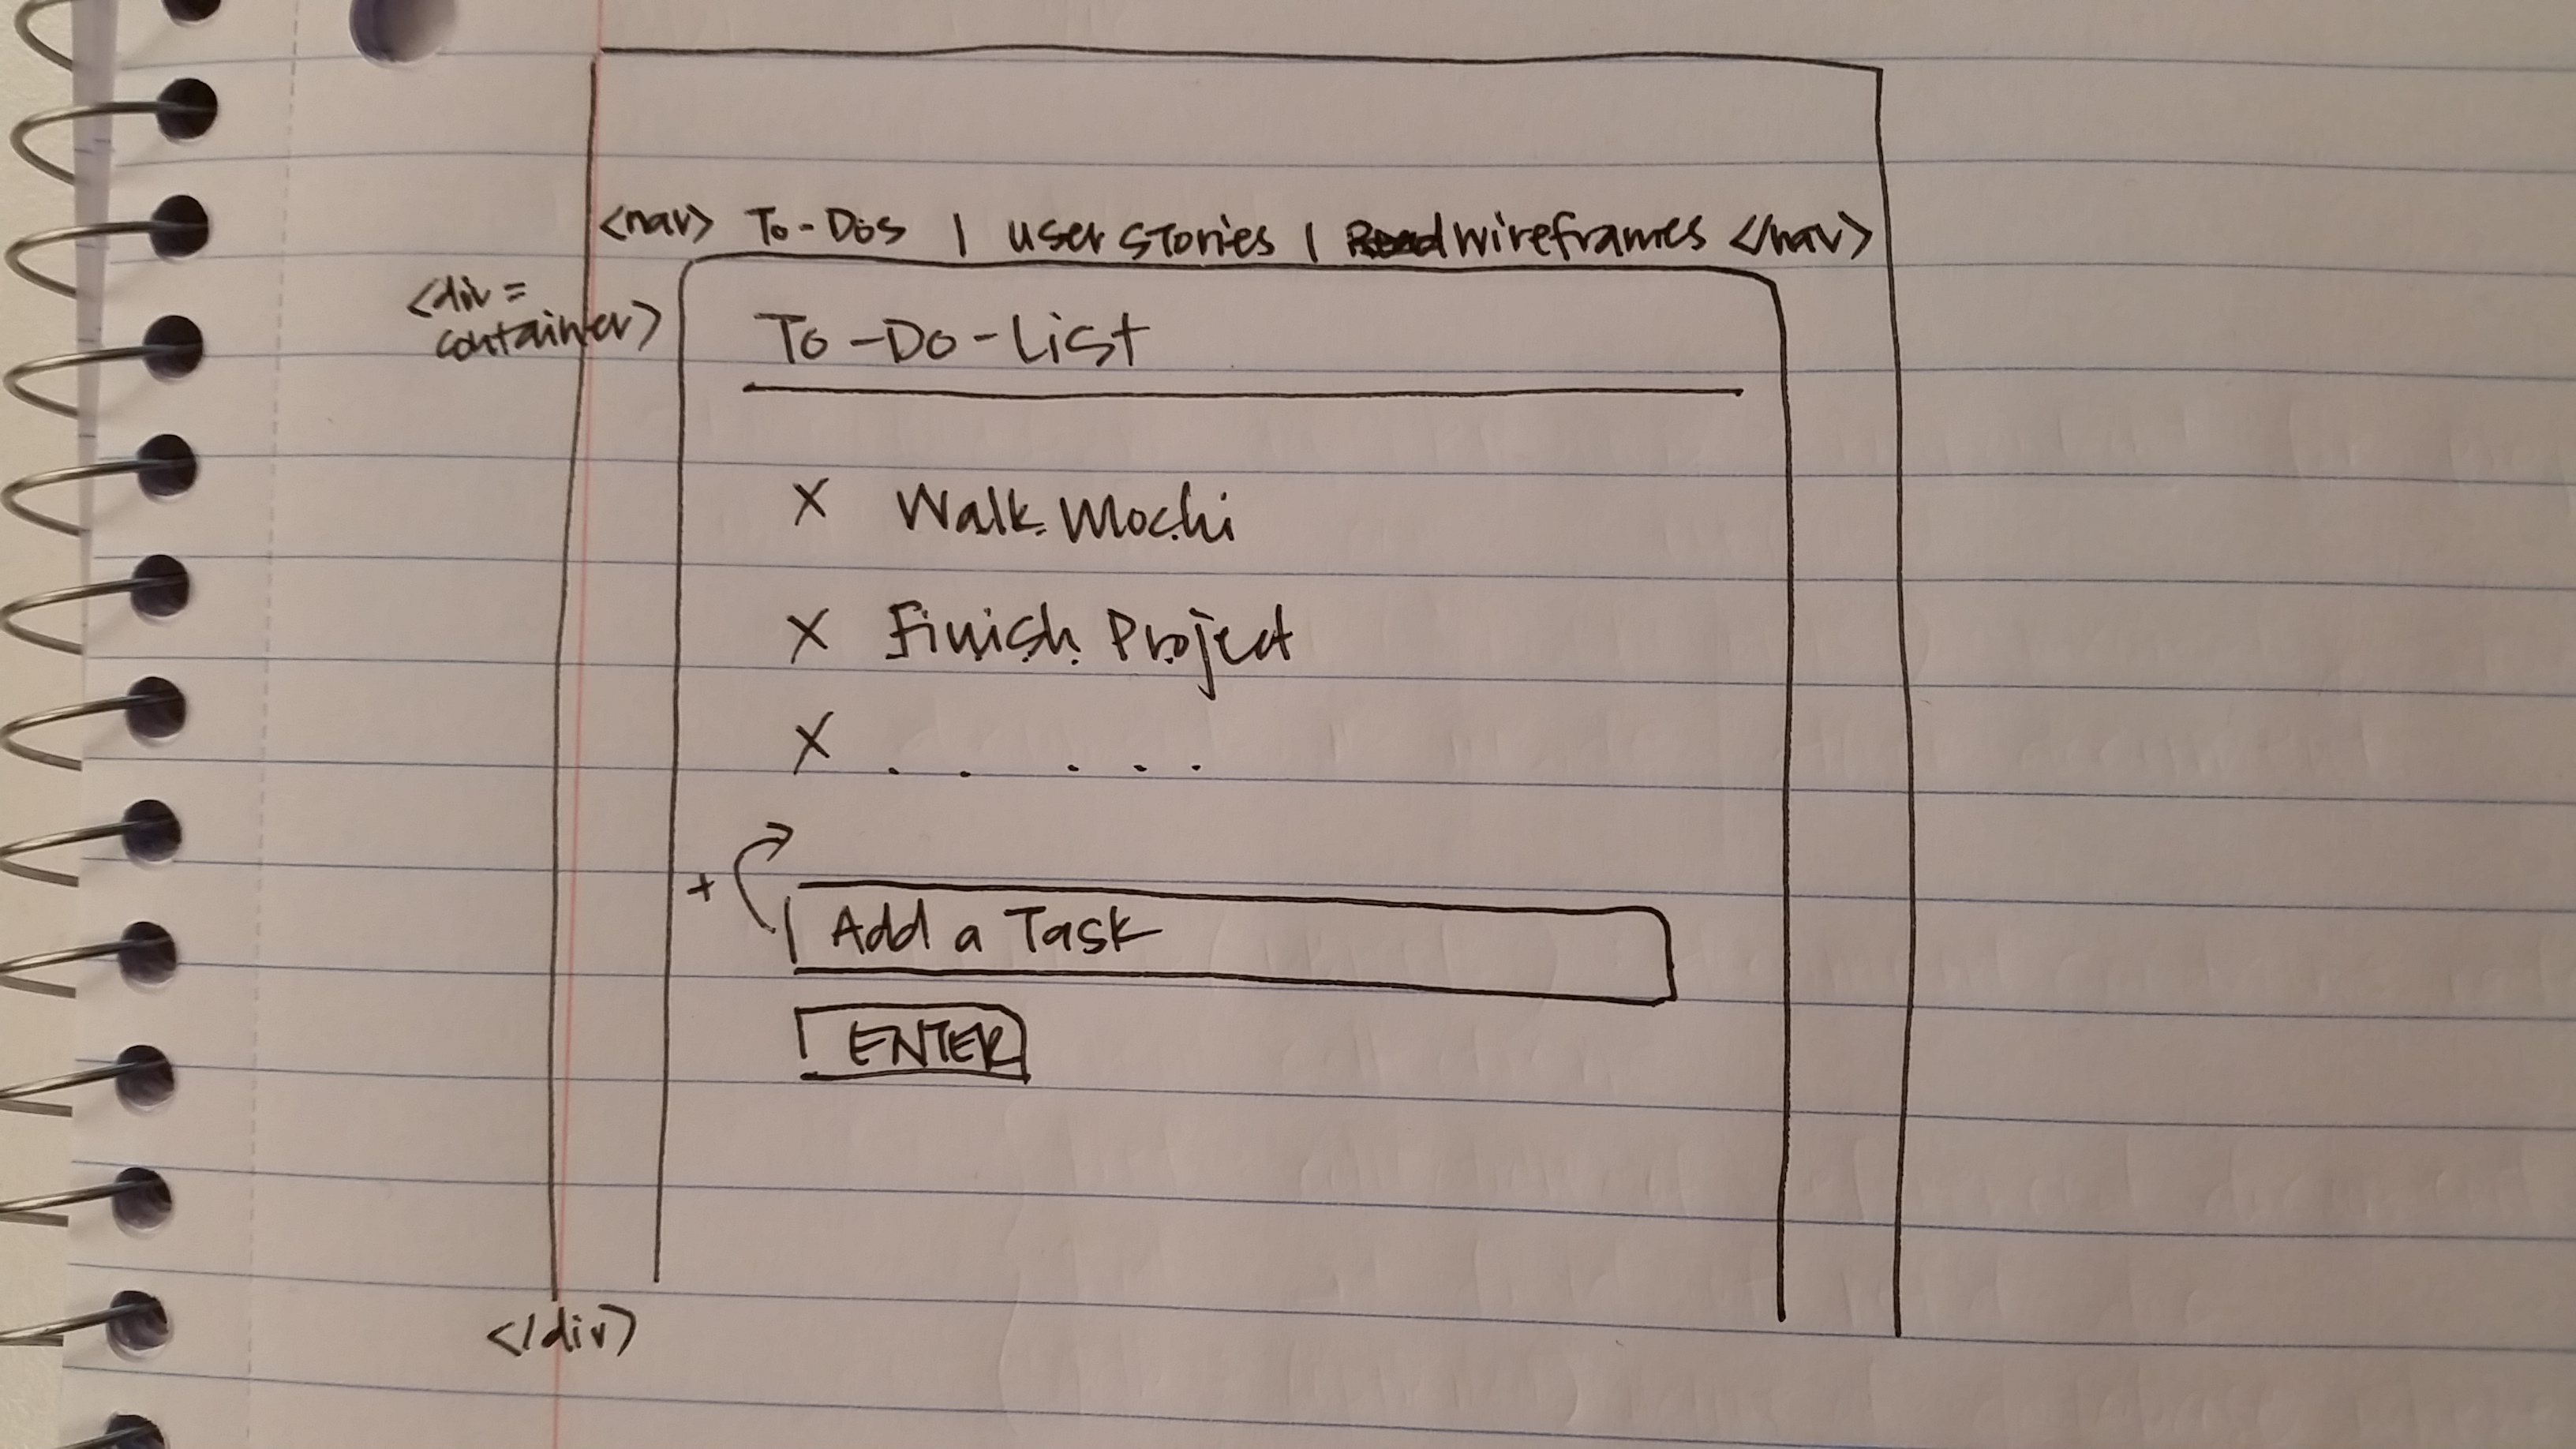 <nav> To-Dos | user stories | wireframes </nav>
<div =
container>
To-Do-List
X Walk Mochi
X Finish Project
X . . . . .
+
Add a Task
ENTER
</div>